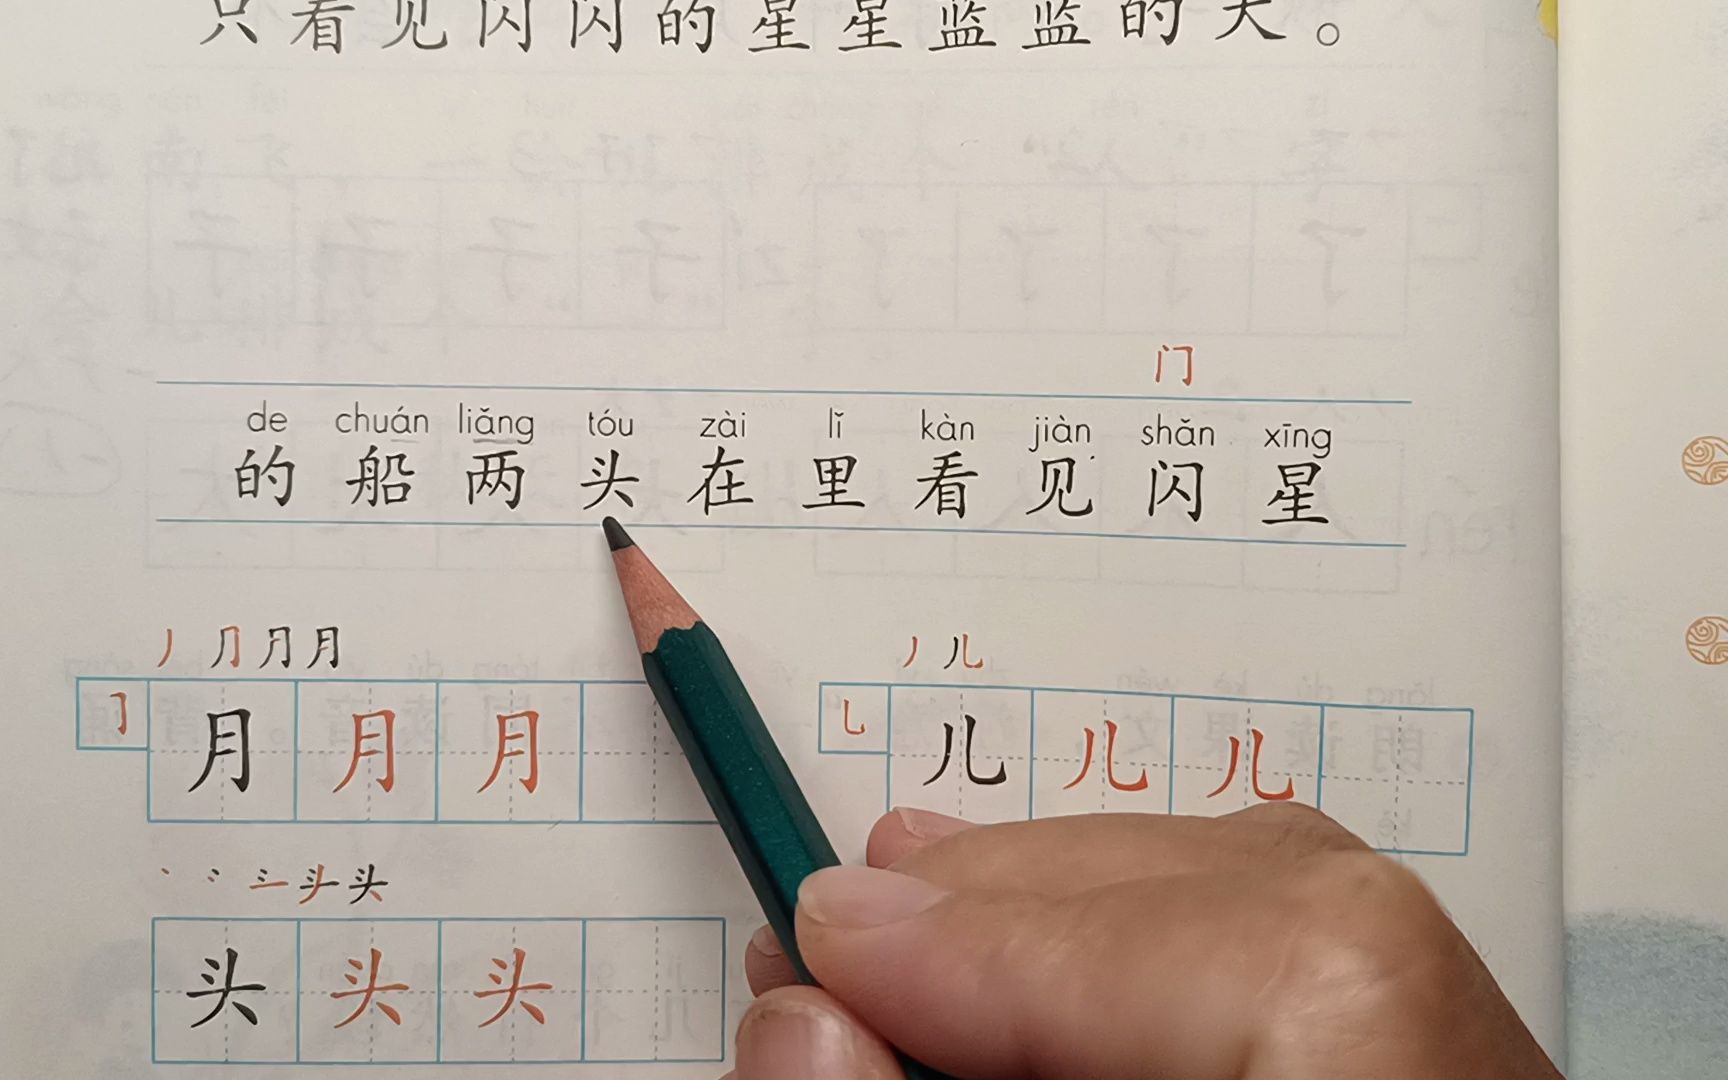 只看见闪闪的星星蓝蓝的天。
门
de chuán liǎng tóu zài lǐ kàn jiàn shǎn xīng
的 船 两 头 在 里 看 见 闪 星
丿 儿
月 月 月
儿 儿 儿
头
头 头 头